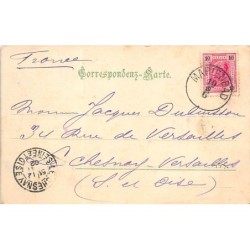 France
10 10
MARIENBAD
Correspondenz-Karte.
Monsieur Jacques Dubuisson
34 Rue de Versailles
Chesnay-Versailles
(S. et Oise)
LE CHESNAY
(SEINE-ET-OISE)